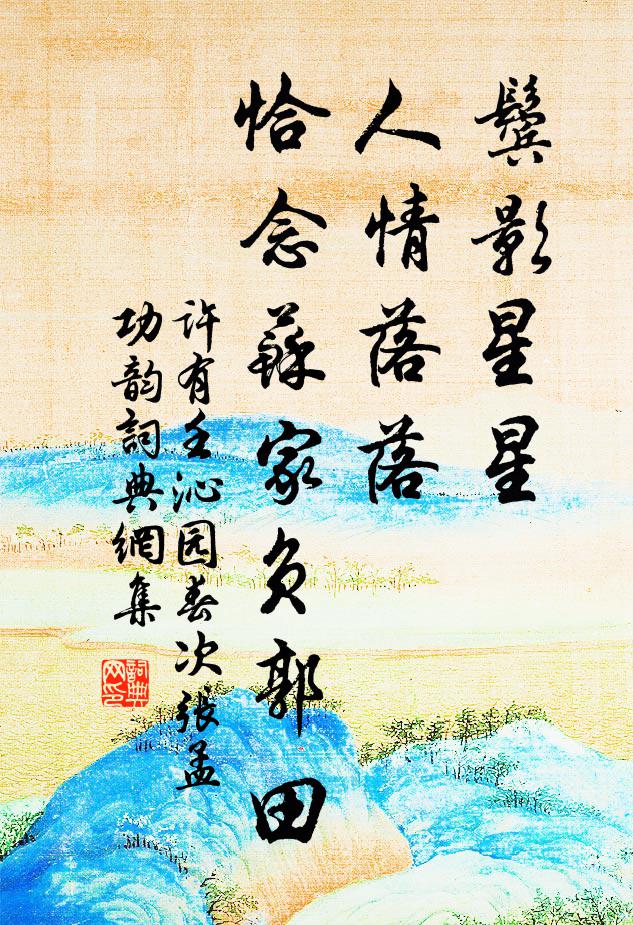 鬓影星星
人情落落
恰念蘇家负郭田
许有壬沁园春次张孟
功韵詞典網集
詞典
网印